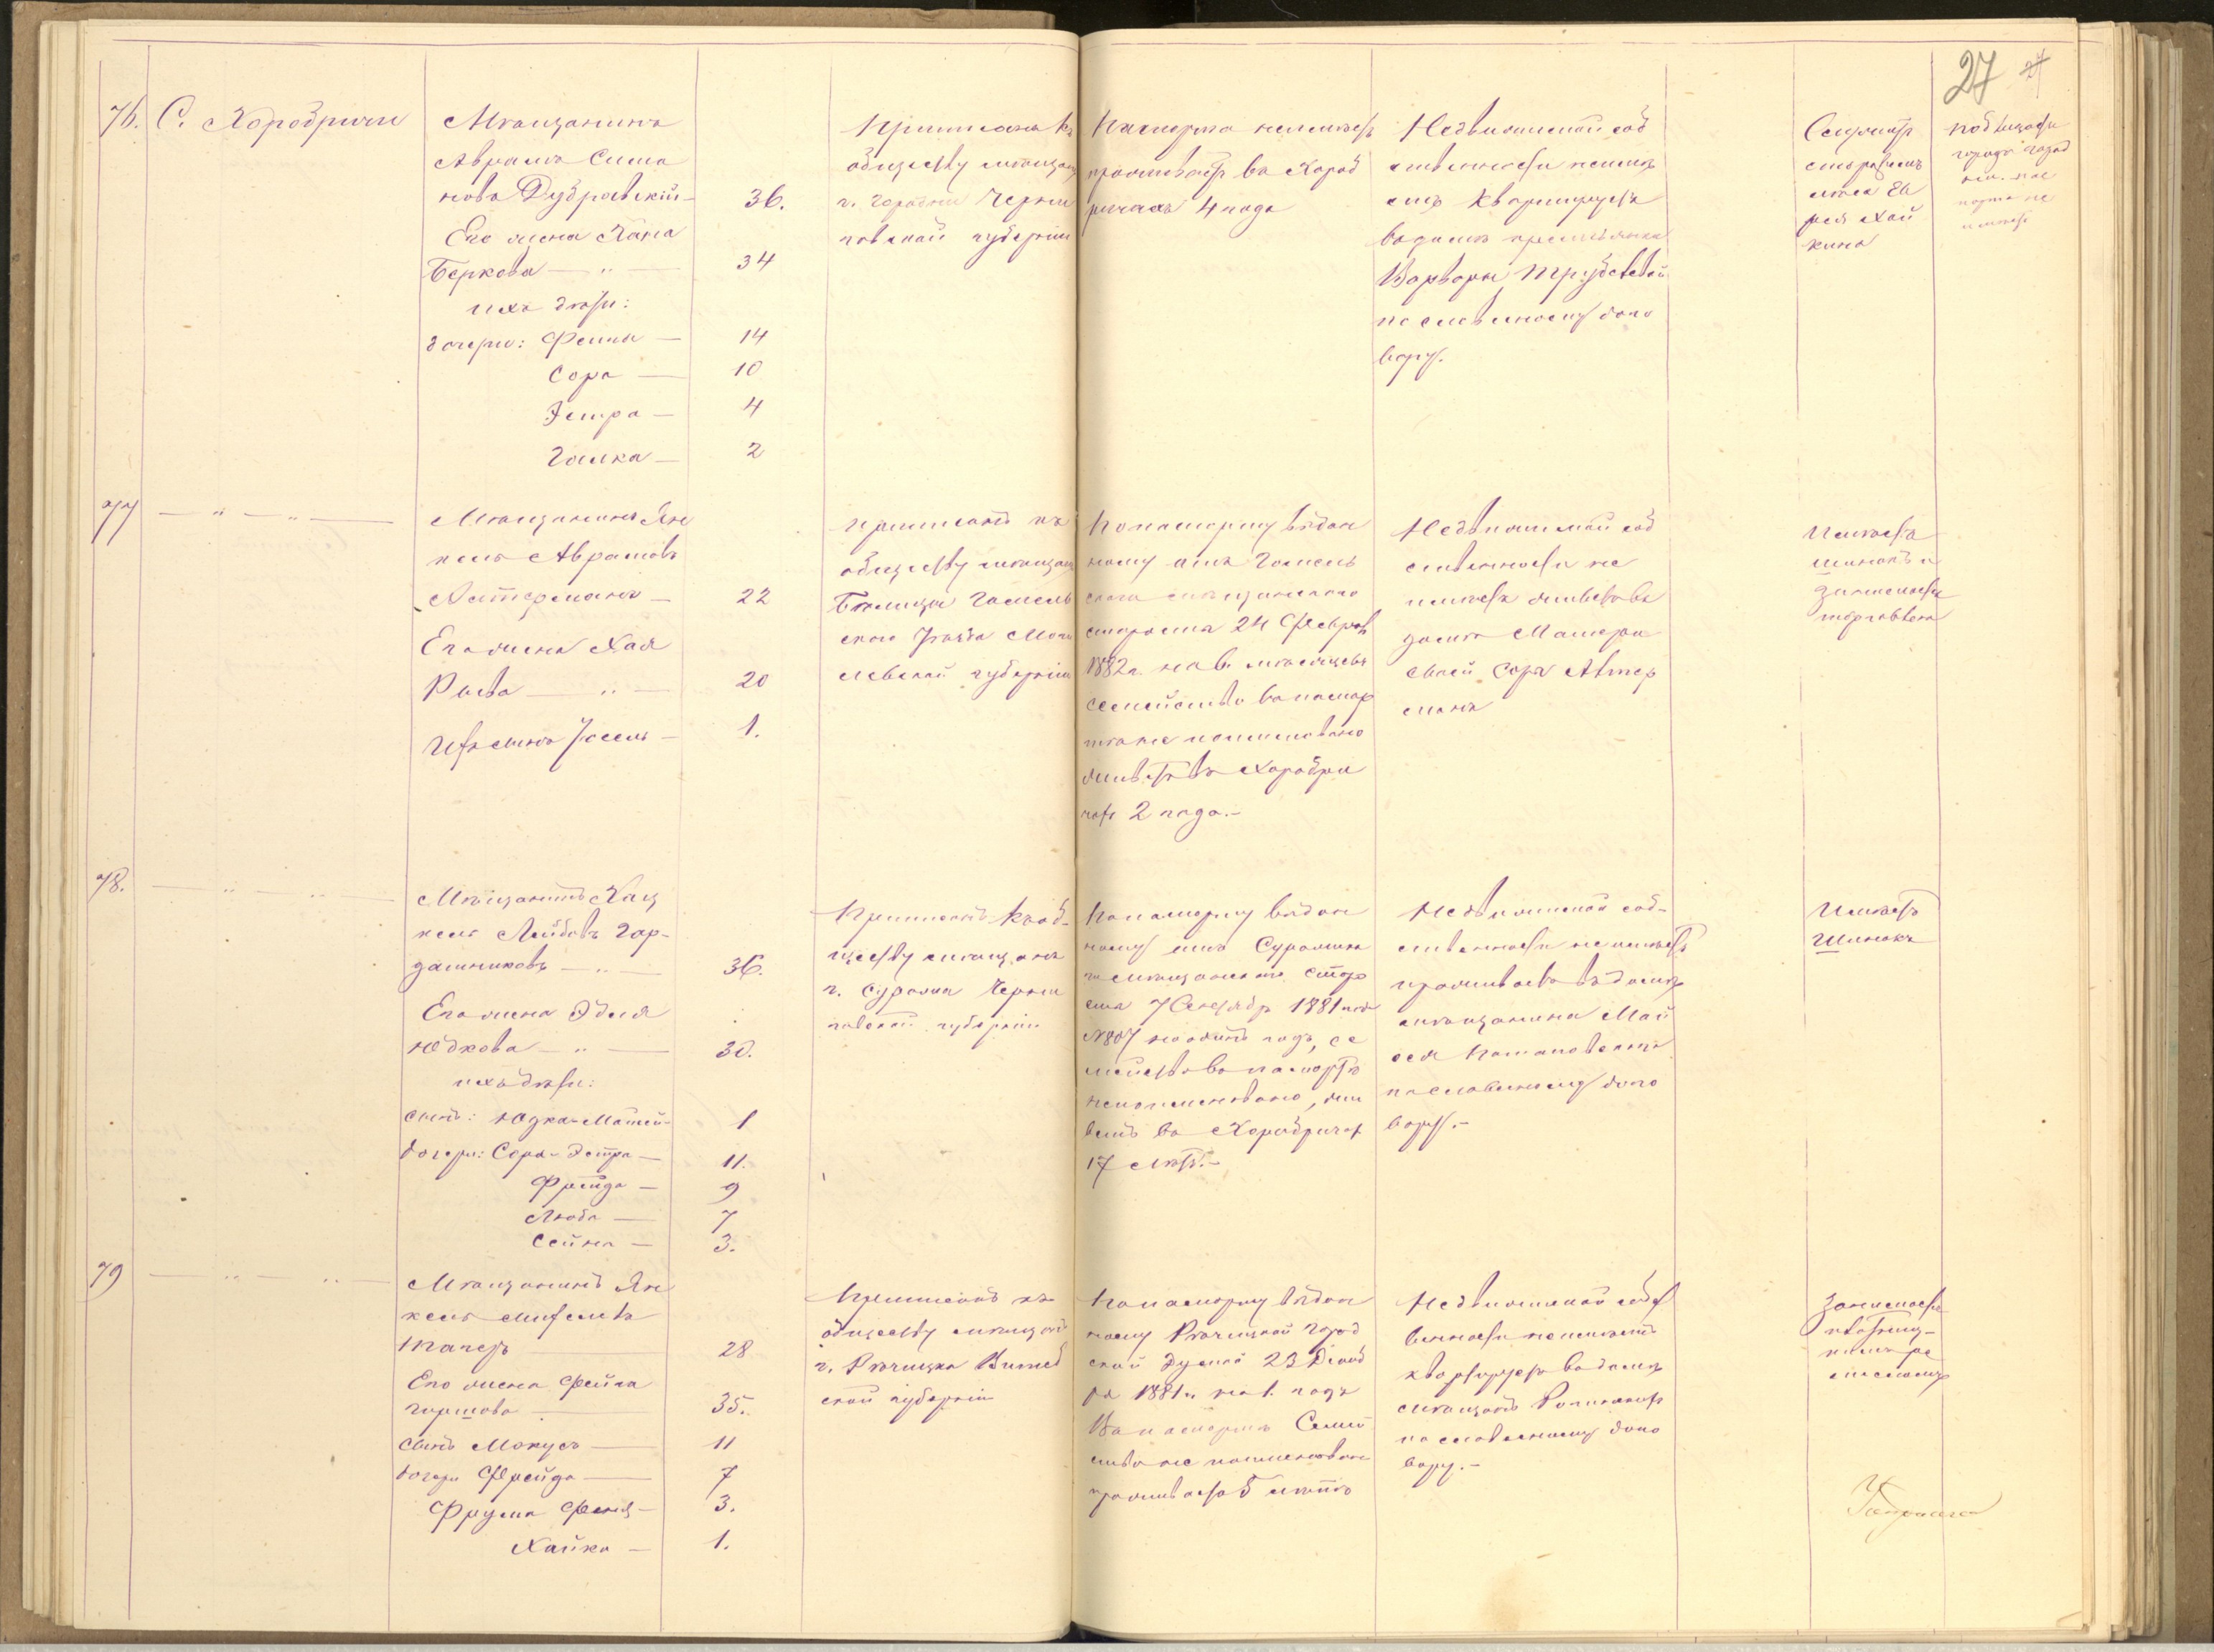 27 27
76. С. Хоробричи
Мѣщанинъ
Аврамъ Сима
новъ Дубровскій — 36.
Его жена Хана
Беркова — " — 34
ихъ дѣти:
дочери: Фейга — 14
Сора — 10
Эстра — 4
Галка — 2
Приписанъ къ
обществу мѣщанъ
г. Городни Черни
говской губерніи
Паспорта неимѣетъ
проживаетъ въ Хороб
ричахъ 4 года
Недвижимой соб
ственности неимѣ
етъ квартируетъ
въ домѣ крестьянки
Варвары
по словесному дого
вору.
Служитъ
у Ев
рея Хай
кина
77 — " — " —
Мѣщанинъ Ян
кель Абрамовъ
Актерманъ — 22
Его жена Хая
Рыва — " — 20
Ихъ сынъ Іосель — 1.
Приписанъ къ
обществу мѣщанъ
Бѣлицы Гомель
скаго Уѣзда Моги
левской губерніи
По паспорту выдан
ному изъ Гомель
скаго мѣщанскаго
старосты 24 Февраля
1882 г. на 6 мѣсяцевъ
семейство въ паспор
тѣ не поименовано
живетъ въ Хоробри
чахъ 2 года. —
Недвижимой соб
ственности не
имѣетъ живетъ въ
домѣ Матери
своей Соры Актер
манъ
Имѣетъ
шинокъ и
занимается
торговлею
78. — " — " —
Мѣщанинъ Хац
кель Лейбовъ Гор-
дашниковъ — " — 36.
Его жена Эдля
Юдкова — " — 30.
ихъ дѣти:
сынъ: Юдка-Матей — 1
дочери: Сора-Эстра — 11.
Фрейда — 9
Люба — 7
Сейна — 3.
Приписанъ къ об-
ществу мѣщанъ
г. Суража Черни
говской губерніи
По паспорту выдан
ному изъ Суражска
го мѣщанскаго старо
сты 7 Сентября 1881 года
№807 на одинъ годъ, се
мейство въ паспортѣ
непоименовано, жи
ветъ въ Хоробричахъ
17 лѣтъ. —
Недвижимой соб-
ственности не имѣетъ
проживаетъ въ домѣ
мѣщанина Мой
сея
по словесному дого
вору. —
Имѣетъ
шинокъ
79 — " — " —
Мѣщанинъ Ян
кель
Ткачъ — 28
Его жена Фейга
Гиршова — 35.
сынъ Монусъ — 11
дочери Фрейда — 7
Фрума Феня — 3.
Хайка — 1.
Приписанъ къ
обществу мѣщанъ
г. Рѣчицка Витеб
ской губерніи
По паспорту выдан
ному Рѣчицкой Город
ской Думой 23 Декаб
ря 1881 г. на 1. годъ
Въ паспортѣ Семей
ство не поименовано
проживаетъ 5 лѣтъ
Недвижимой собст
венности не имѣетъ
квартируетъ въ домѣ
мѣщанъ
по словесному дого
вору. —
Занимается